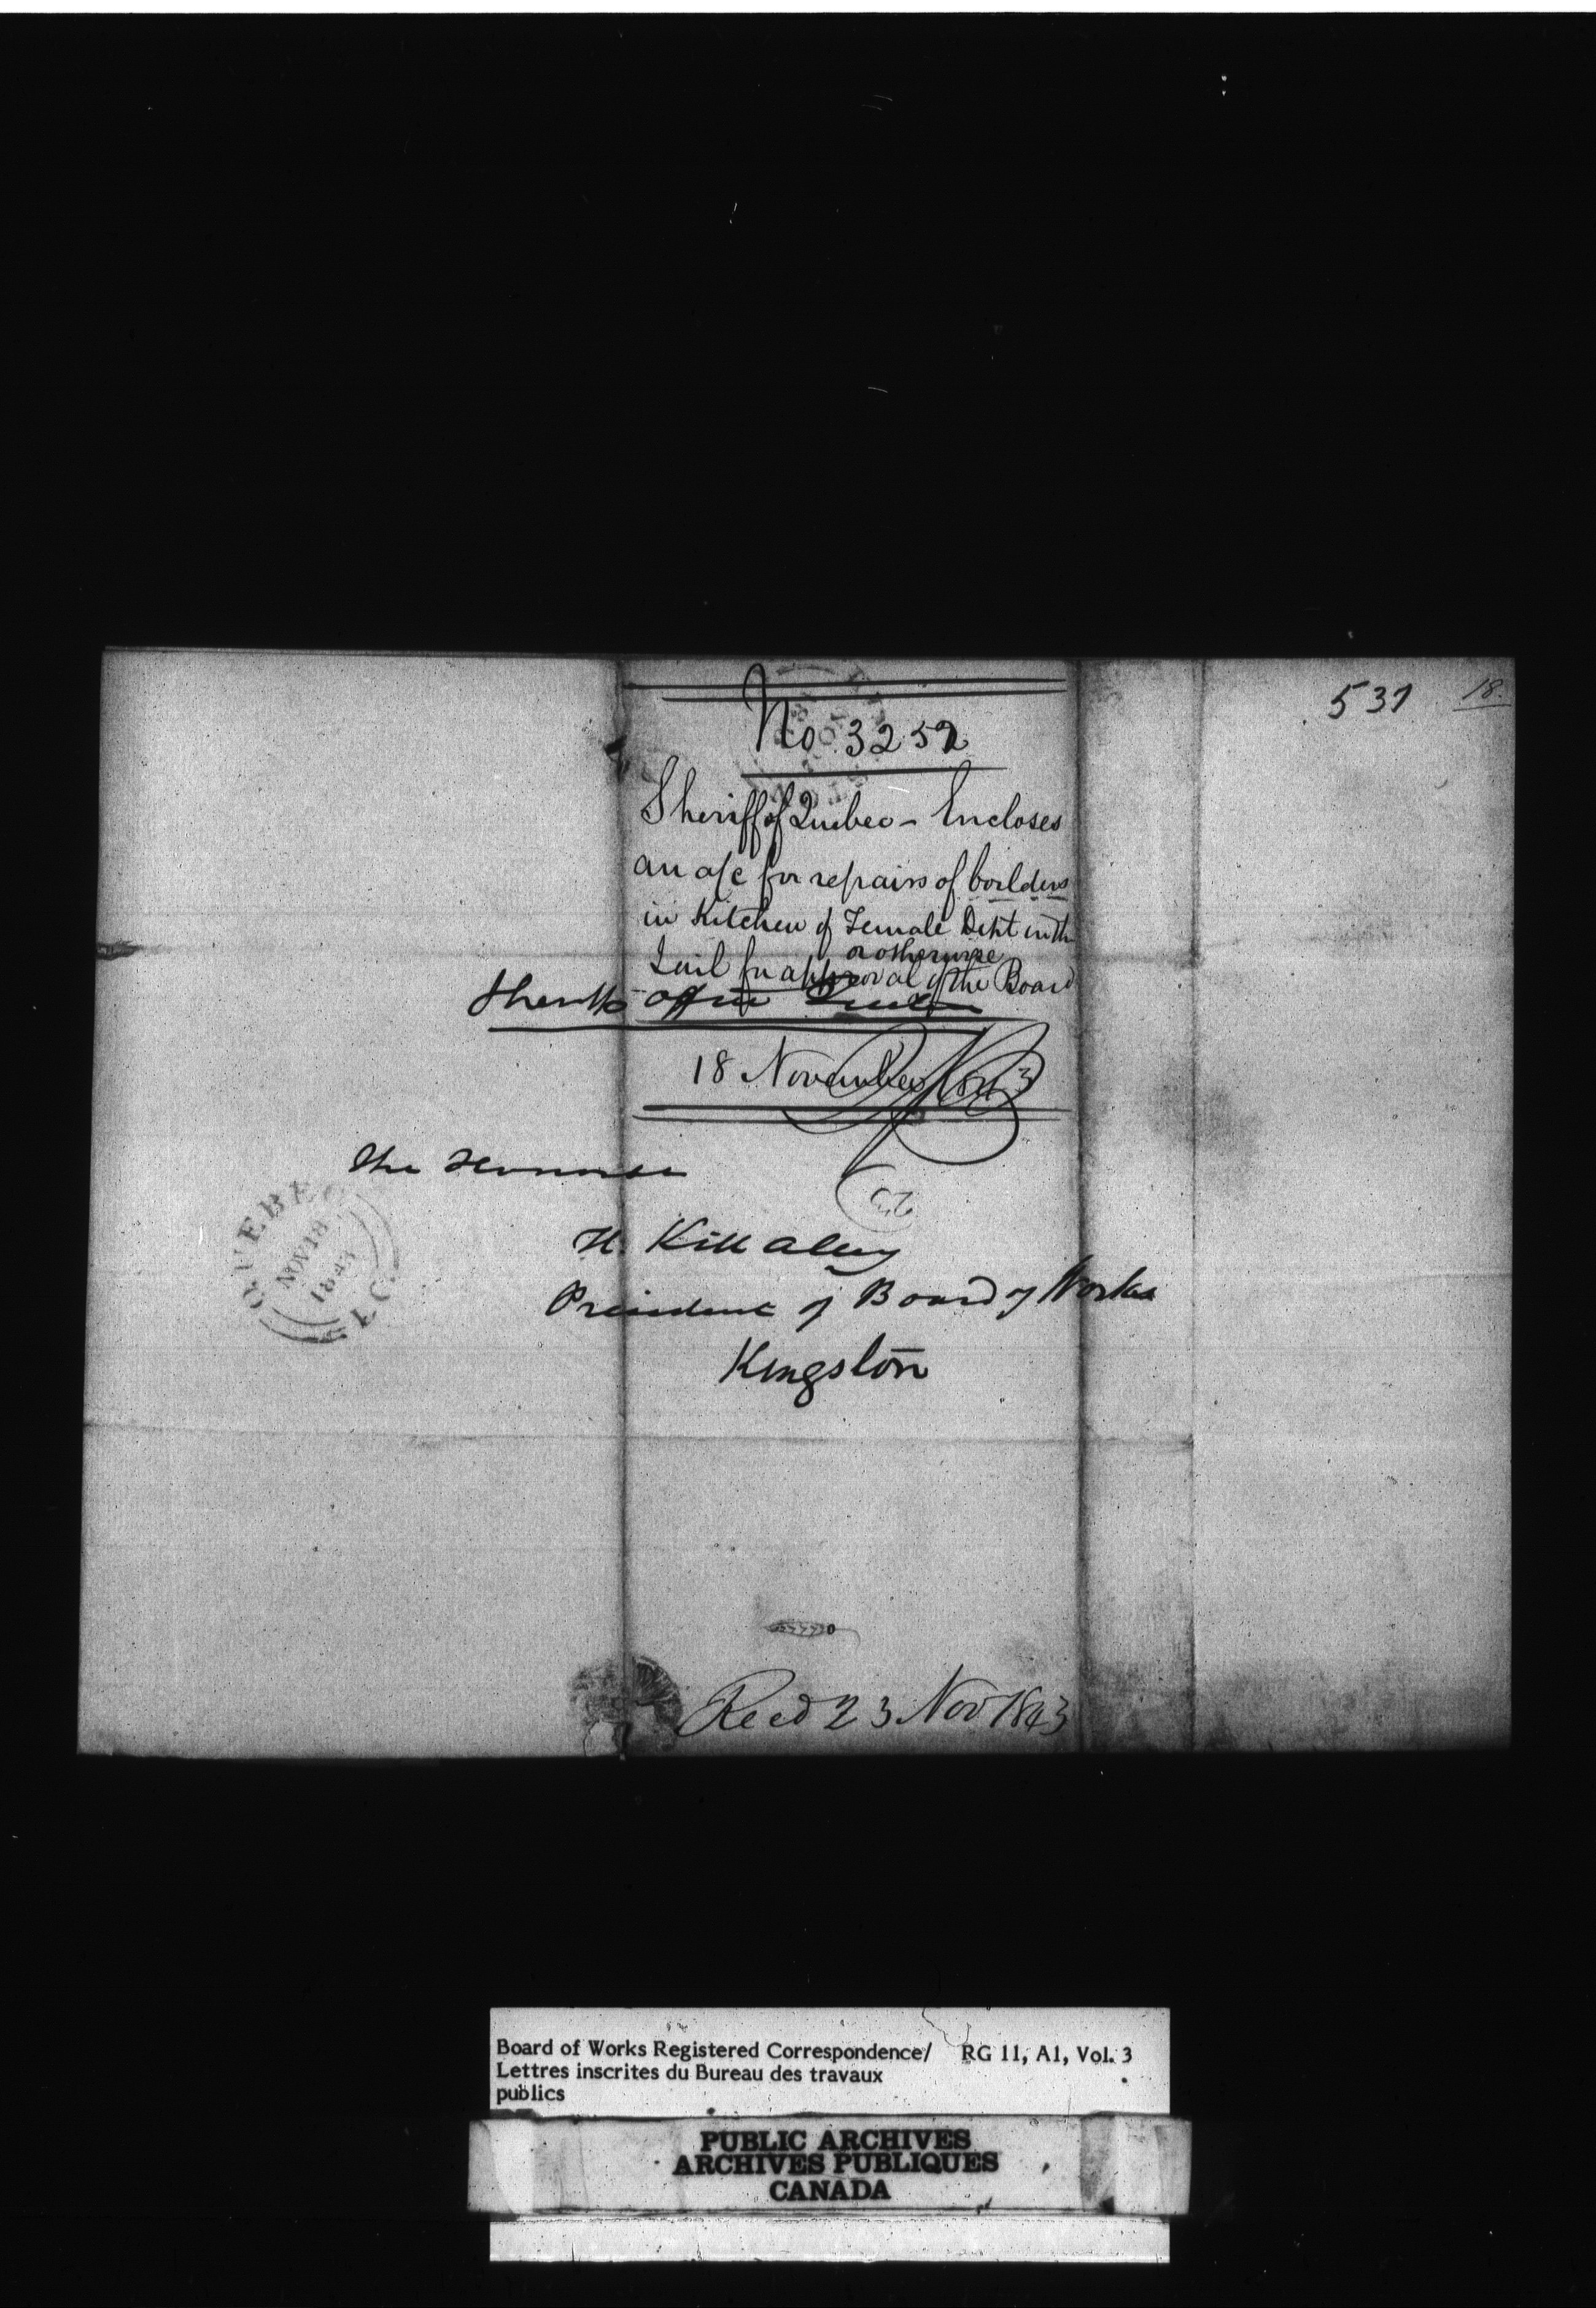 537 18.
No. 3252
Sheriff of Quebec - Encloses
an a/c for repairs of boilders
in Kitchen of Female Dept in the
or otherwise
Gail for approval of the Board
Sheriffs office Quebec
18 November 1843
The Honorable
QUEBEC
NOV 18
1843
L.C.
H. Killaley
President of Board of Works
Kingston
Recd 23 Nov 1843
Board of Works Registered Correspondence/ RG 11, A1, Vol. 3
Lettres inscrites du Bureau des travaux
publics
PUBLIC ARCHIVES
ARCHIVES PUBLIQUES
CANADA